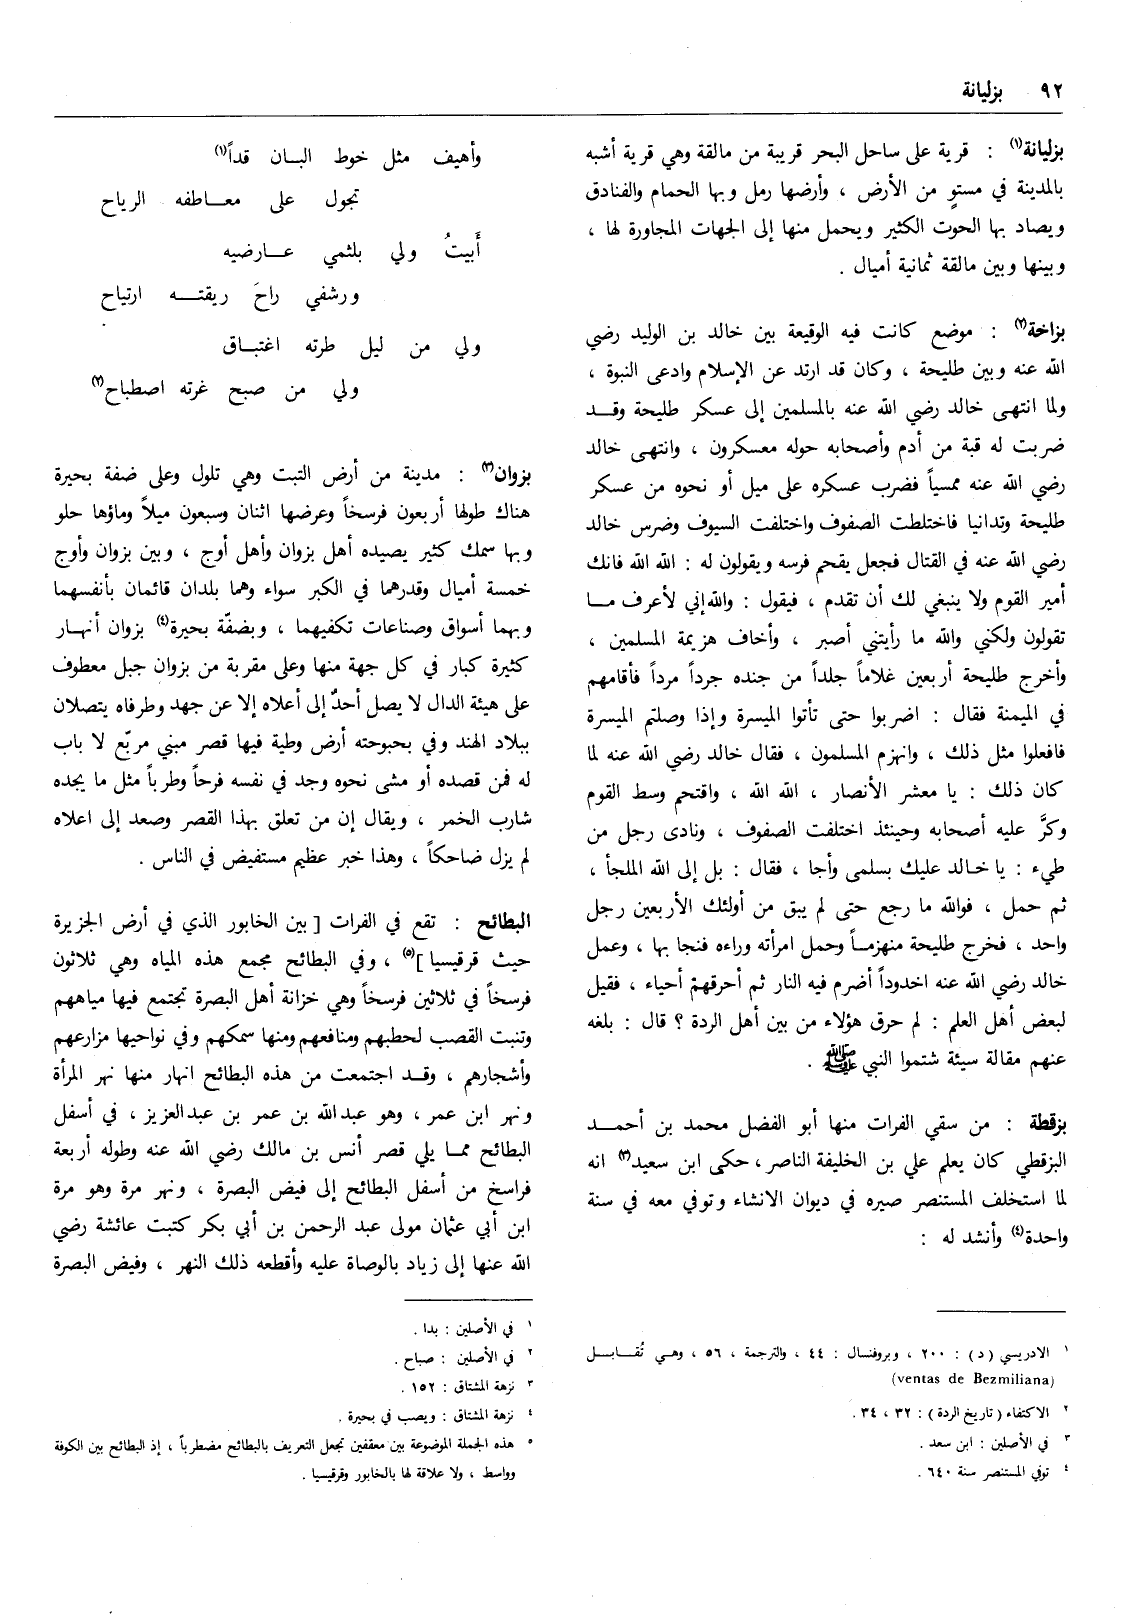 ٩٢ بزليانة
بزليانة(١) : قرية على ساحل البحر قريبة من مالقة وهي قرية أشبه
بالمدينة في مستوٍ من الأرض ، وأرضها رمل وبها الحمام والفنادق
ويصاد بها الحوت الكثير ويحمل منها إلى الجهات المجاورة لها ،
وبينها وبين مالقة ثمانية أميال .
بزاخة(٢) : موضع كانت فيه الوقيعة بين خالد بن الوليد رضي
الله عنه وبين طليحة ، وكان قد ارتد عن الإسلام وادعى النبوة ،
ولما انتهى خالد رضي الله عنه بالمسلمين إلى عسكر طليحة وقد
ضربت له قبة من أدم وأصحابه حوله معسكرون ، وانتهى خالد
رضي الله عنه ممسياً فضرب عسكره على ميل أو نحوه من عسكر
طليحة وتدانيا فاختلطت الصفوف واختلفت السيوف وضرس خالد
رضي الله عنه في القتال فجعل يقحم فرسه ويقولون له : الله الله فانك
أمير القوم ولا ينبغي لك أن تقدم ، فيقول : والله إني لأعرف ما
تقولون ولكني والله ما رأيتني أصبر ، وأخاف هزيمة المسلمين ،
وأخرج طليحة أربعين غلاماً جلداً من جنده جرداً مرداً فأقامهم
في الميمنة فقال : اضربوا حتى تأتوا الميسرة وإذا وصلتم الميسرة
فافعلوا مثل ذلك ، وانهزم المسلمون ، فقال خالد رضي الله عنه لما
كان ذلك : يا معشر الأنصار ، الله الله ، واقتحم وسط القوم
وكرَّ عليه أصحابه وحينئذ اختلفت الصفوف ، ونادى رجل من
طيء : يا خالد عليك بسلمى وأجا ، فقال : بل إلى الله الملجأ ،
ثم حمل ، فوالله ما رجع حتى لم يبق من أولئك الأربعين رجل
واحد ، فخرج طليحة منهزماً وحمل امرأته وراءه فنجا بها ، وعمل
خالد رضي الله عنه اخدوداً أضرم فيه النار ثم أحرقهم أحياء ، فقيل
لبعض أهل العلم : لم حرق هؤلاء من بين أهل الردة ؟ قال : بلغه
عنهم مقالة سيئة شتموا النبي ﷺ .
بزقطة : من سقي الفرات منها أبو الفضل محمد بن أحمد
البزقطي كان يعلم علي بن الخليفة الناصر ، حكى ابن سعيد(٣) انه
لما استخلف المستنصر صيره في ديوان الانشاء وتوفي معه في سنة
واحدة(٤) وأنشد له :
١ الادريسي (د) : ٢٠٠ ، وبروفنسال : ٤٤ ، والترجمة ، ٥٦ ، وهي تُقابل
(ventas de Bezmiliana)
٢ الاكتفاء (تاريخ الردة) : ٣٢ ، ٣٤ .
٣ في الأصلين : ابن سعد .
٤ توفي المستنصر سنة ٦٤٠ .
وأهيف مثل خوط البان قداً(١)
تجول على معاطفه الرياح
أَبيتُ ولي بلثمي عارضيه
ورشفي راحَ ريقته ارتياح
ولي من ليل طرته اغتباق
ولي من صبح غرته اصطباح(٢)
بزوان(٣) : مدينة من أرض التبت وهي تلول وعلى ضفة بحيرة
هناك طولها أربعون فرسخاً وعرضها اثنان وسبعون ميلاً وماؤها حلو
وبها سمك كثير يصيده أهل بزوان وأهل أوج ، وبين بزوان وأوج
خمسة أميال وقدرهما في الكبر سواء وهما بلدان قائمان بأنفسهما
وبهما أسواق وصناعات تكفيهما ، وبضفّة بحيرة(٤) بزوان أنهار
كثيرة كبار في كل جهة منها وعلى مقربة من بزوان جبل معطوف
على هيئة الدال لا يصل أحدٌ إلى أعلاه إلا عن جهد وطرفاه يتصلان
ببلاد الهند وفي بحبوحته أرض وطية فيها قصر مبني مربّع لا باب
له فمن قصده أو مشى نحوه وجد في نفسه فرحاً وطرباً مثل ما يجده
شارب الخمر ، ويقال إن من تعلق بهذا القصر وصعد إلى اعلاه
لم يزل ضاحكاً ، وهذا خبر عظيم مستفيض في الناس .
البطائح : تقع في الفرات [ بين الخابور الذي في أرض الجزيرة
حيث قرقيسيا ](٥) ، وفي البطائح مجمع هذه المياه وهي ثلاثون
فرسخاً في ثلاثين فرسخاً وهي خزانة أهل البصرة تجتمع فيها مياههم
وتنبت القصب لحطبهم ومنافعهم ومنها سمكهم وفي نواحيها مزارعهم
وأشجارهم ، وقد اجتمعت من هذه البطائح انهار منها نهر المرأة
ونهر ابن عمر ، وهو عبد الله بن عمر بن عبد العزيز ، في أسفل
البطائح مما يلي قصر أنس بن مالك رضي الله عنه وطوله أربعة
فراسخ من أسفل البطائح إلى فيض البصرة ، ونهر مرة وهو مرة
ابن أبي عثمان مولى عبد الرحمن بن أبي بكر كتبت عائشة رضي
الله عنها إلى زياد بالوصاة عليه وأقطعه ذلك النهر ، وفيض البصرة
١ في الأصلين : بدا .
٢ في الأصلين : صباح .
٣ نزهة المشتاق : ١٥٢ .
٤ نزهة المشتاق : ويصب في بحيرة .
٥ هذه الجملة الموضوعة بين معقفين تجعل التعريف بالبطائح مضطرباً ، إذ البطائح بين الكوفة
وواسط ، ولا علاقة لها بالخابور وقرقيسيا .